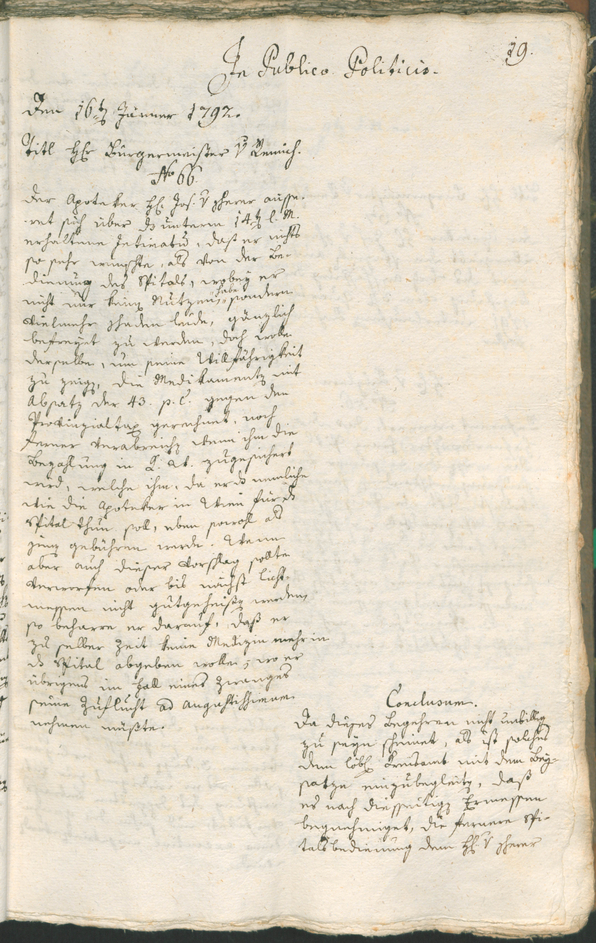 19.
In Publico Politicis.
Den 16t Jänner 1792.
Titl H: Bürgermeister v
No 66.
Der Apoteker H: Jos: v Pherer äusse-
ret sich über das unterm 14t l. M.
erhaltene Intimatum, daß er nichts
so sehr wünschte, als von der Be-
dienung des Spitals, wobey er
nicht nur keinen Nutzen habe, sondern
vielmehr Schaden leide, gänzlich
befreyet zu werden, doch wolle
derselbe, um seine Willfährigkeit
zu zeigen, die Medikamenten mit
Absatz der 43. p. C. gegen den
Provinzialtax gerechnet, noch
ferner verabreichen wenn ihm die
Bezahlung in zugesichert
wird, welche ihm, da er es nemliche
wie die Apoteker in Wien fürs
Spital thun soll, eben sowol als
jenen gebühren werde. Wenn
aber auch dieser Vorschlag sollte
verworfen oder bis nächst Licht-
messen nicht gutgeheißen werden,
so beharre er darauf, daß er
zu selber Zeit keine Medizin mehr in
das Spital abgeben wolle, wo er
übrigens im Fall eines Zwanges
seine Zuflucht ad Augustissimum
nehmen müßte.
Conclusum.
Da dieses Begehren nicht unbillig
zu seyn scheinet, als ist solches
dem löbl: Kreisamt mit dem Bey-
satze einzubegleiten, daß
es nach diesseitigen Ermessen
begnehmiget, die fernere Spi-
talsbedienung dem H: v Pherer